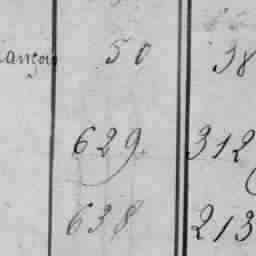 ançois 50 38
629. 312
638 213